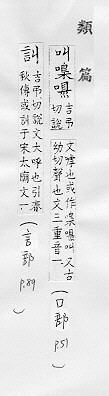 類篇
叫嘄 吉弔
切說
文嘑也或作嘄叫又古
幼切聲也文三重音一
(口部 p.51)
訆 古弔切說文大呼也引春
秋傳或訆于宋太廟文一
(言部 p.89)